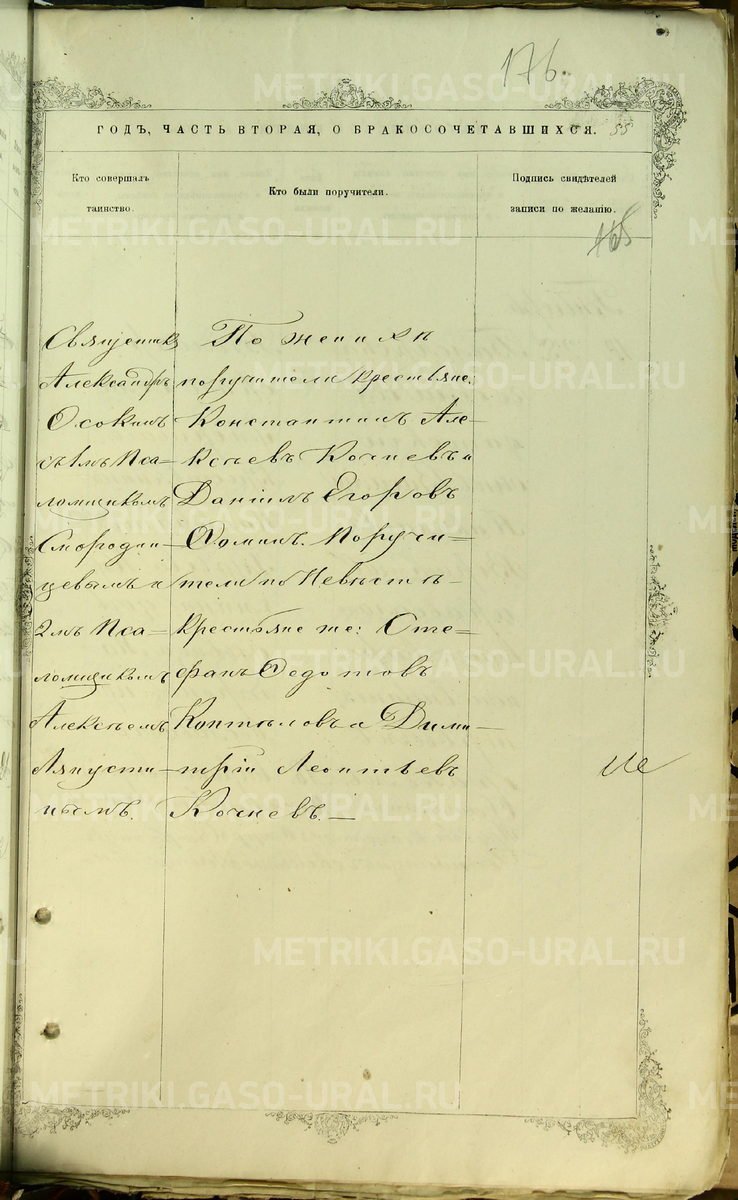 176.
ГОДЪ, ЧАСТЬ ВТОРАЯ, О БРАКОСОЧЕТАВШИХСЯ. 55
Кто совершалъ
таинство.
Кто были поручители.
Подпись свидѣтелей
записи по желанію.
165
Священникъ
Александръ
Осокинъ
съ 1мъ Пса-
ломщикомъ
Смородин-
цевымъ и
2мъ Пса-
ломщикомъ
Алексѣемъ
Ляпусти-
нымъ.
По женихѣ
поручители крестьяне:
Константинъ Але-
ксѣевъ Кочневъ и
Даніилъ Егоровъ
Ѳоминъ. Поручи-
тели по Невѣстѣ-
крестьяне же: Сте-
фанъ Ѳедотовъ
Коптѣловъ и Дими-
трій Леонтьевъ
Кочневъ. —
METRIKI.GASO-URAL.RU